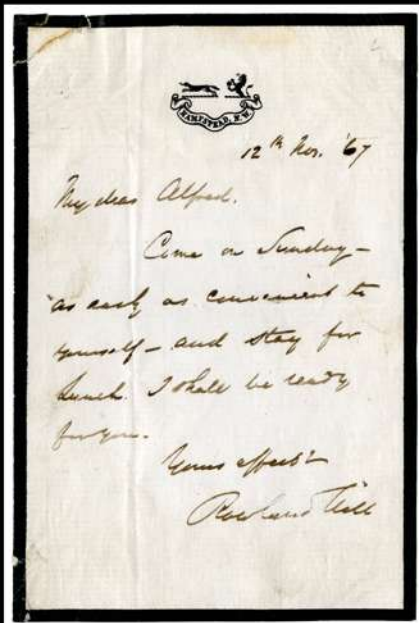 HAMPSTEAD, N.W.
12th Nov. '67
My dear Alfred.
Come on Sunday –
as early as convenient to
yourself – and stay for
lunch. I shall be ready
for you.
Yours affectly
Rowland Hill